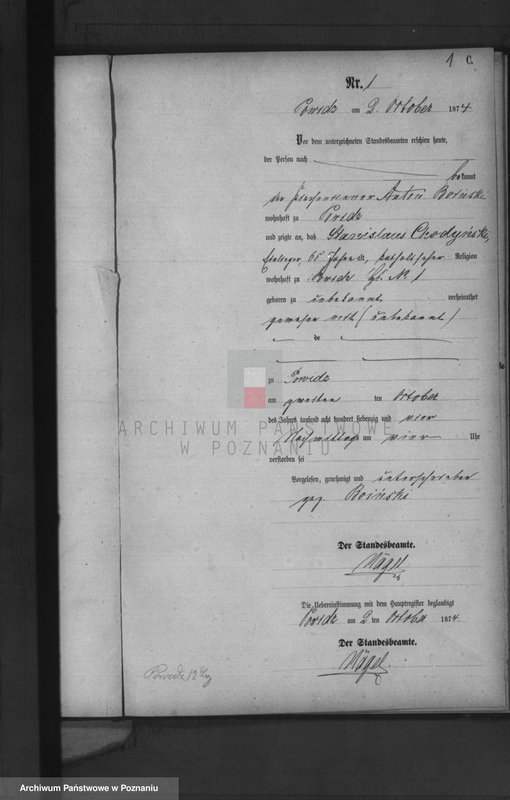 1 C.
Nr. 1
Powidz am 2. October 1874
Vor dem unterzeichneten Standesbeamten erschien heute,
der Person nach
bekannt
der Anton Boiński
wohnhaft zu Powidz
und zeigte an, daß Stanislaus Chodyński,
65 Jahre alt, katholischer Religion
wohnhaft zu Powidz No 1
geboren zu unbekannt verheirathet
gewesen mit (unbekannt)
de
zu Powidz
am zweiten ten October
des Jahres tausend acht hundert siebenzig und vier
Nachmittags um vier Uhr
verstorben sei
Vorgelesen, genehmigt und unterschrieben
gez. Boiński
Der Standesbeamte.
Nägel
Die Uebereinstimmung mit dem Hauptregister beglaubigt
Powidz am 2 ten October 1874
Der Standesbeamte.
Nägel
ARCHIWUM PAŃSTWOWE
W POZNANIU
Archiwum Państwowe w Poznaniu